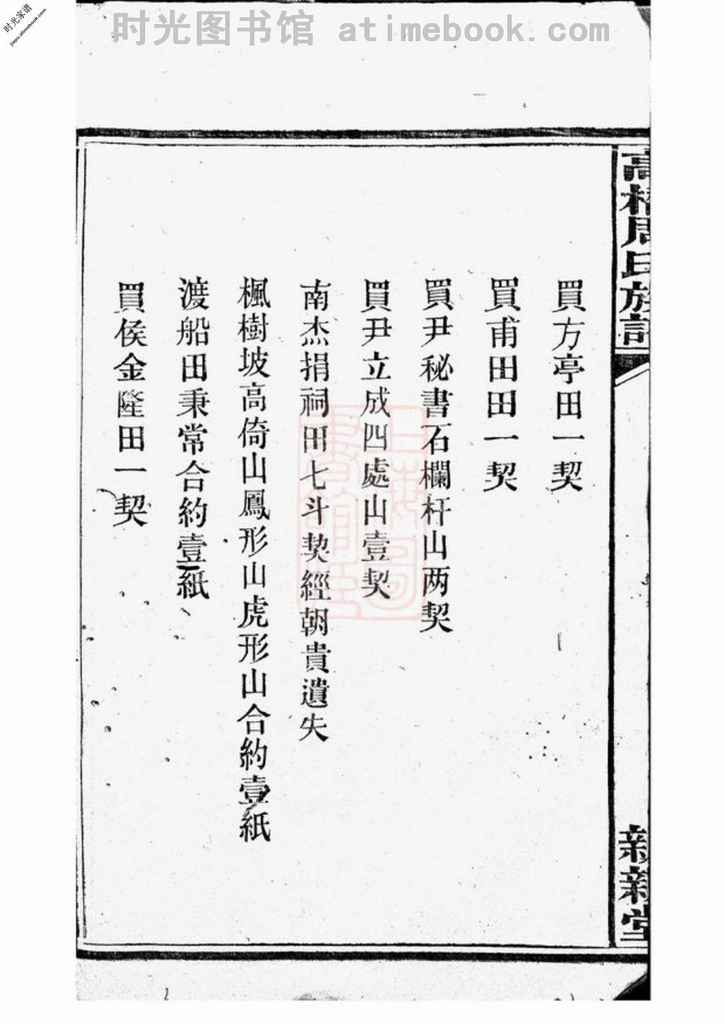 时光图书馆 atimebook.com
时光家谱
高橋周氏族譜
買方亭田一契
買甫田田一契
買尹秘書石欄杆山两契
買尹立成四處山壹契
南杰捐祠田七斗契經朝貴遺失
楓樹坡高倚山鳳形山虎形山合約壹紙
渡船田秉常合約壹紙
買侯金隆田一契
堂